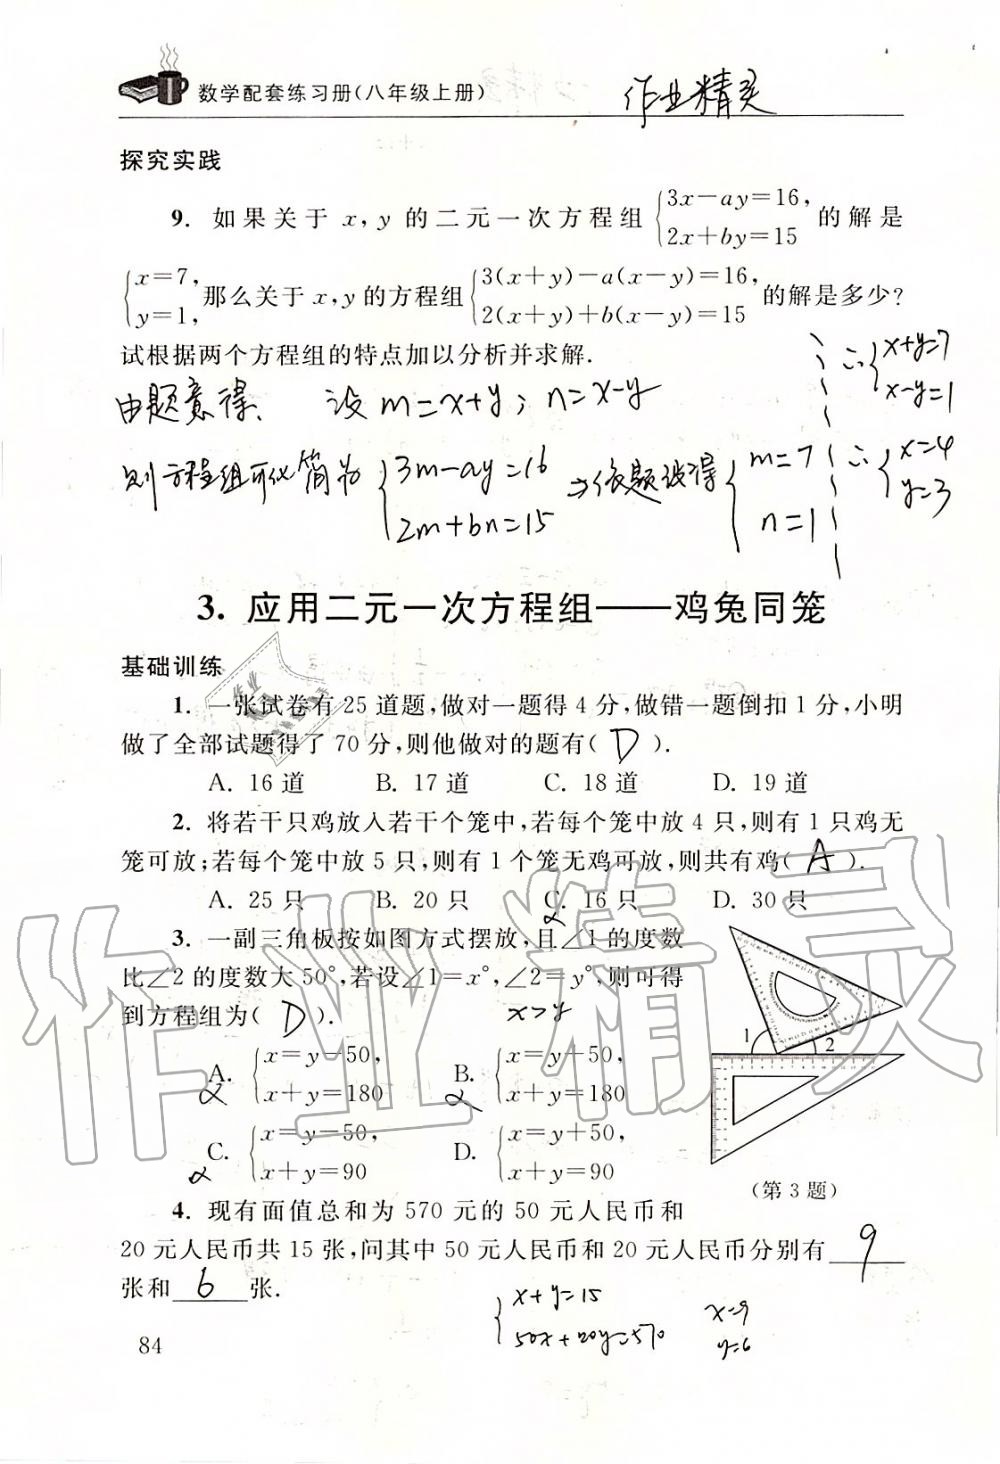 数学配套练习册(八年级上册)
作业精灵
探究实践
9. 如果关于 x, y 的二元一次方程组 {3x-ay=16, 2x+by=15 的解是
{x=7, y=1, 那么关于 x, y 的方程组 {3(x+y)-a(x-y)=16, 2(x+y)+b(x-y)=15 的解是多少?
试根据两个方程组的特点加以分析并求解.
由题意得. 设 m=x+y; n=x-y
则方程组可化简为 {3m-ay=16 2m+bn=15 ⇒依题设得 {m=7 n=1
∴{x+y=7 x-y=1
∴{x=4 y=3
3. 应用二元一次方程组——鸡兔同笼
基础训练
1. 一张试卷有 25 道题,做对一题得 4 分,做错一题倒扣 1 分,小明
做了全部试题得了 70 分,则他做对的题有( D ).
A. 16 道 B. 17 道 C. 18 道 D. 19 道
2. 将若干只鸡放入若干个笼中,若每个笼中放 4 只,则有 1 只鸡无
笼可放;若每个笼中放 5 只,则有 1 个笼无鸡可放,则共有鸡( A ).
A. 25 只 B. 20 只 C. 16 只 D. 30 只
3. 一副三角板按如图方式摆放,且∠1 的度数
比∠2 的度数大 50°,若设∠1=x°,∠2=y°,则可得
到方程组为( D ).
x>y
A. {x=y-50, x+y=180 B. {x=y+50, x+y=180
C. {x=y-50, x+y=90 D. {x=y+50, x+y=90
1 2
(第 3 题)
4. 现有面值总和为 570 元的 50 元人民币和
20 元人民币共 15 张,问其中 50 元人民币和 20 元人民币分别有 9
张和 6 张.
{x+y=15 50x+20y=570
x=9
y=6
84
作业精灵